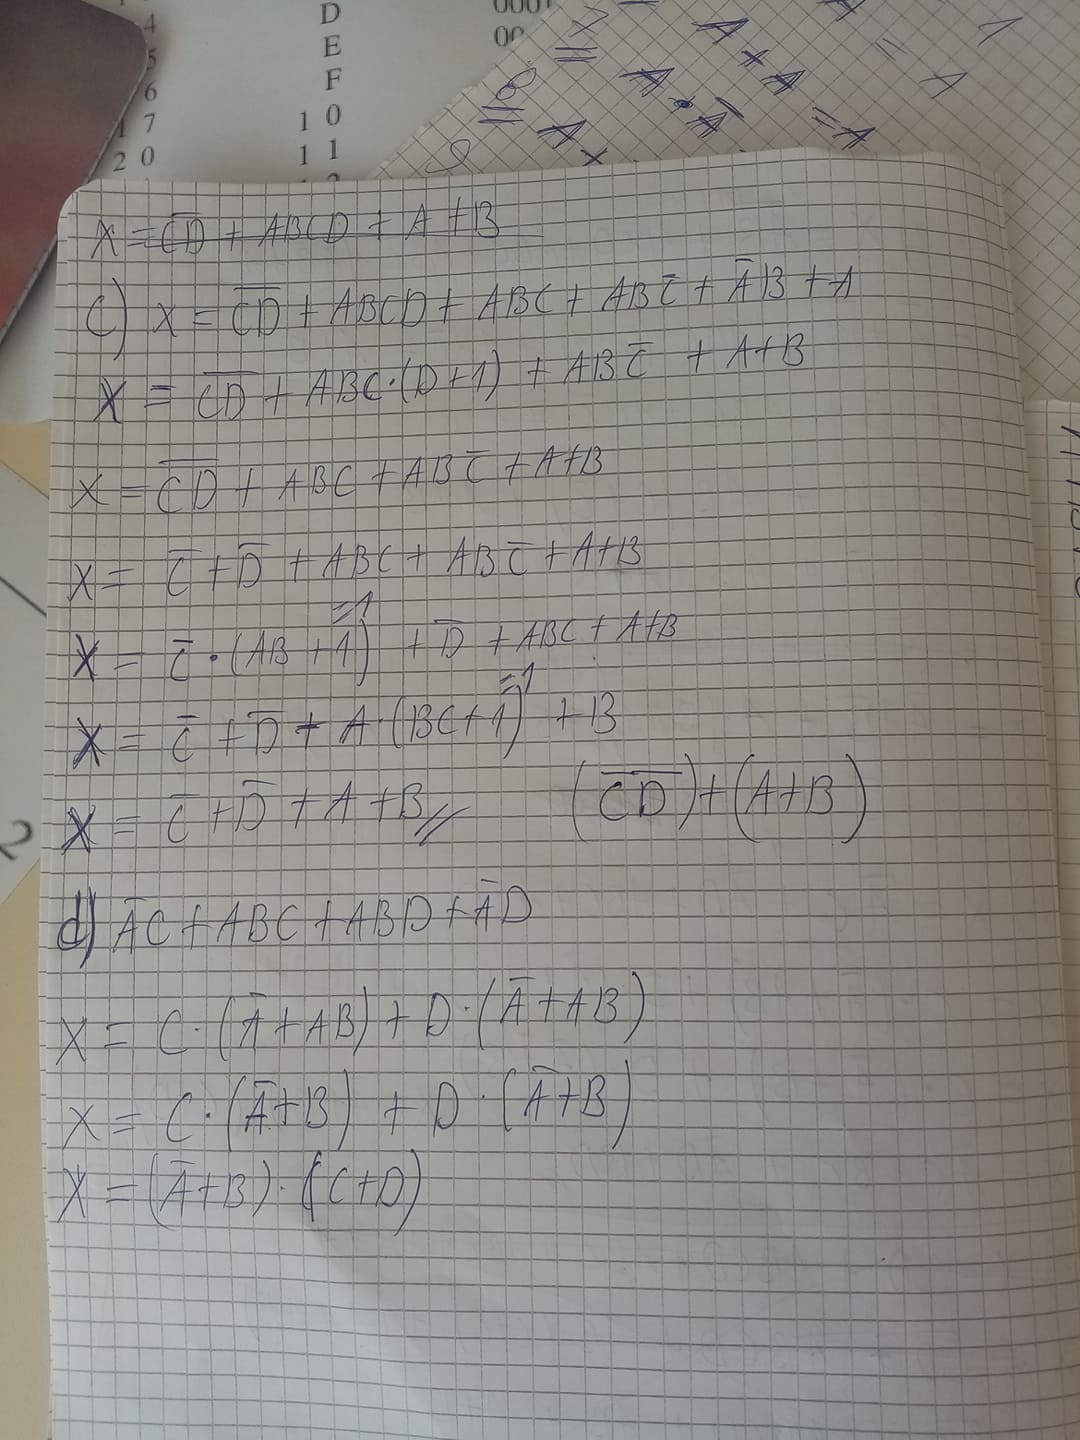 4
5
6
1 7
2 0
D
E
F
1 0
1 1
0001
00
A + A = A
A • A̅
= A
1
X = C̅D̅ + ABCD + A + B
c) X = C̅D̅ + ABCD + ABC + ABC̅ + A̅B + A
X = C̅D̅ + ABC·(D+1) + ABC̅ + A+B
X = C̅D̅ + ABC + ABC̅ + A+B
X = C̅ + D̅ + ABC + ABC̅ + A+B
=1
X = C̅·(AB+1) + D̅ + ABC + A+B
=1
X = C̅ + D̅ + A·(BC+1) + B
X = C̅ + D̅ + A + B // (C̅D̅)+(A+B)
d) A̅C + ABC + ABD + A̅D
X = C·(A̅+AB) + D·(A̅+AB)
X = C·(A̅+B) + D·(A̅+B)
X = (A̅+B)·(C+D)
2